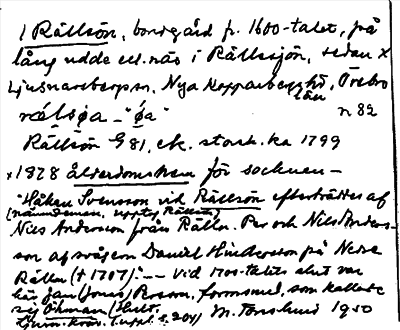 1 Rällsön, bondgård fr. 1600-talet, på
lång udde el. näs i Rällssjön, sedan x
Ljusnarsbergs sn, Nya Kopparbergs hd, Örebro
län
rälsøa - "øa" n 82
Rällsön G 81, ek. stork. ka 1799
x 1928 ålderdomshem för socknen -
"Håken Svensson vid Rällsön efterträddes af
Nils Andersson från Rällen. Per och Nils Anders-
son af svågern Daniel Hindersson på Nedre
Rällen († 1707)." -- Vid 1700-talets slut var
här Jan (Jonas) Persson, som kallade
sig Öhman M. Törnlund 1950